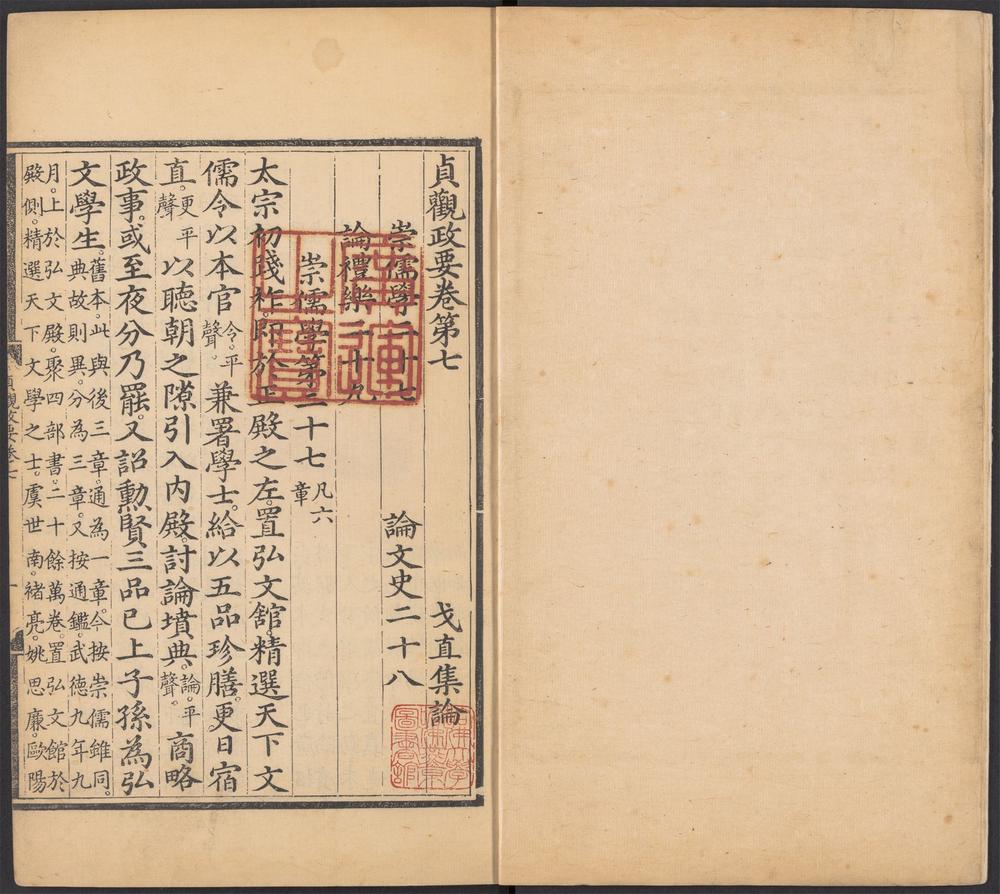 貞觀政要卷第七　戈直集論
崇儒學二十七　論文史二十八
論禮樂二十九
崇儒學第二十七凡六章
太宗初踐祚。即於正殿之左。置弘文舘。精選天下文
儒。令以本官令。平聲。兼署學士。給以五品珍膳。更日宿
直。更平聲以聽朝之隙引入内殿。討論墳典。論。平聲。商略
政事。或至夜分乃罷。又詔勳賢三品已上子孫為弘
文學生。舊本。此與後三章。通為一章。今按崇儒雖同。典故則異。分為三章。又按通鑑。武德九年九
月。上於弘文殿。聚四部書。二十餘萬卷。置弘文館於殿側。精選天下文學之士。虞世南。褚亮。姚思廉。歐陽
貞觀政要卷七